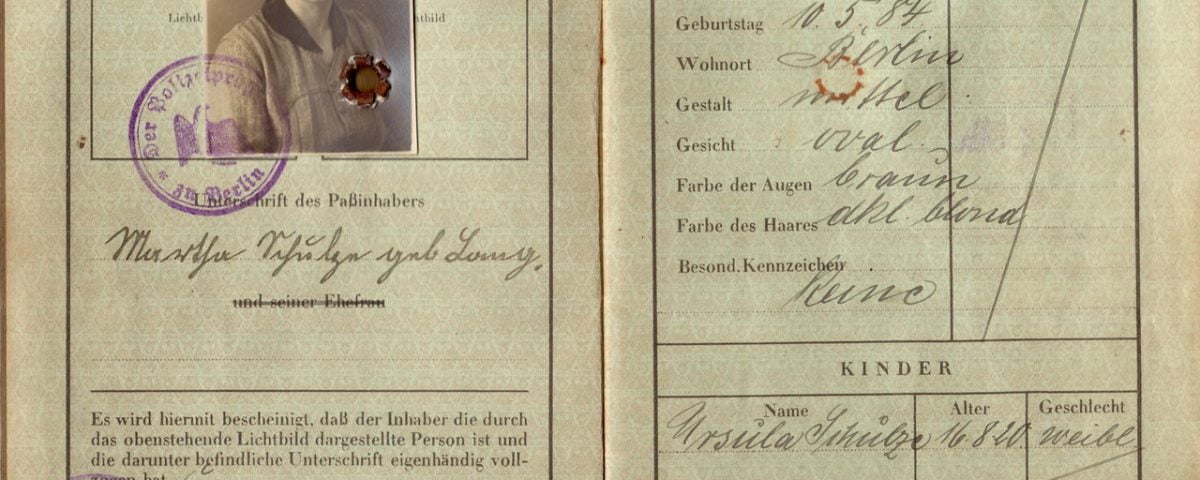 Lichtb
tbild
Der Polizeiprä
zu Berlin
Unterschrift des Paßinhabers
Martha Schulze geb Lang.
und seiner Ehefrau
Es wird hiermit bescheinigt, daß der Inhaber die durch
das obenstehende Lichtbild dargestellte Person ist und
die darunter befindliche Unterschrift eigenhändig voll-
zogen hat.
Geburtstag 10. 5. 84
Wohnort Berlin
Gestalt mittel
Gesicht oval
Farbe der Augen braun
Farbe des Haares dkl. blond
Besond. Kennzeichen
Keine
KINDER
Name Alter Geschlecht
Ursula Schulze 16.8.20 weibl.